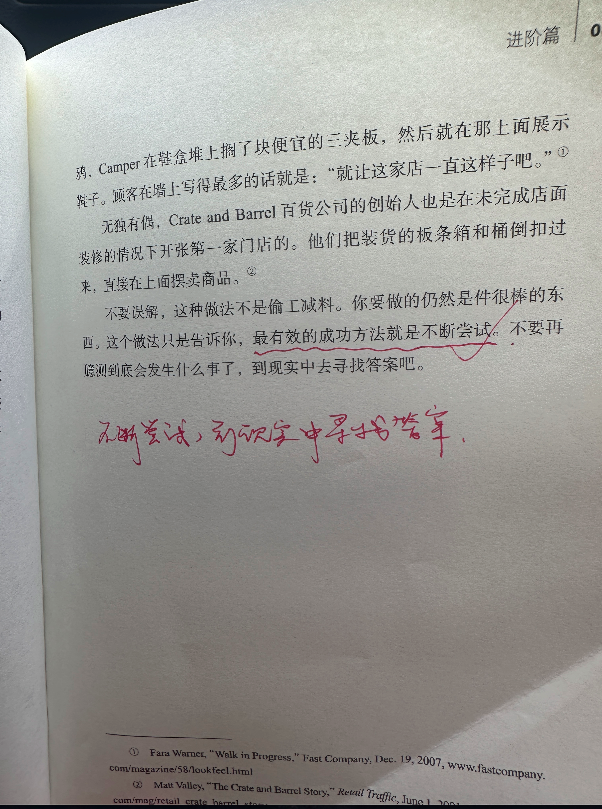 进阶篇 0
鸦，Camper 在鞋盒堆上搁了块便宜的三夹板，然后就在那上面展示
鞋子。顾客在墙上写得最多的话就是：“就让这家店一直这样子吧。”①
无独有偶，Crate and Barrel 百货公司的创始人也是在未完成店面
装修的情况下开张第一家门店的。他们把装货的板条箱和桶倒扣过
来，直接在上面摆卖商品。②
不要误解，这种做法不是偷工减料。你要做的仍然是件很棒的东
西。这个做法只是告诉你，最有效的成功方法就是不断尝试。不要再
臆测到底会发生什么事了，到现实中去寻找答案吧。
不断尝试，到现实中寻找答案.
① Fara Warner, “Walk in Progress,” Fast Company, Dec. 19, 2007, www.fastcompany.
com/magazine/58/lookfeel.html
② Matt Valley, “The Crate and Barrel Story,” Retail Traffic, June 1,
com/mag/retail_crate_barrel